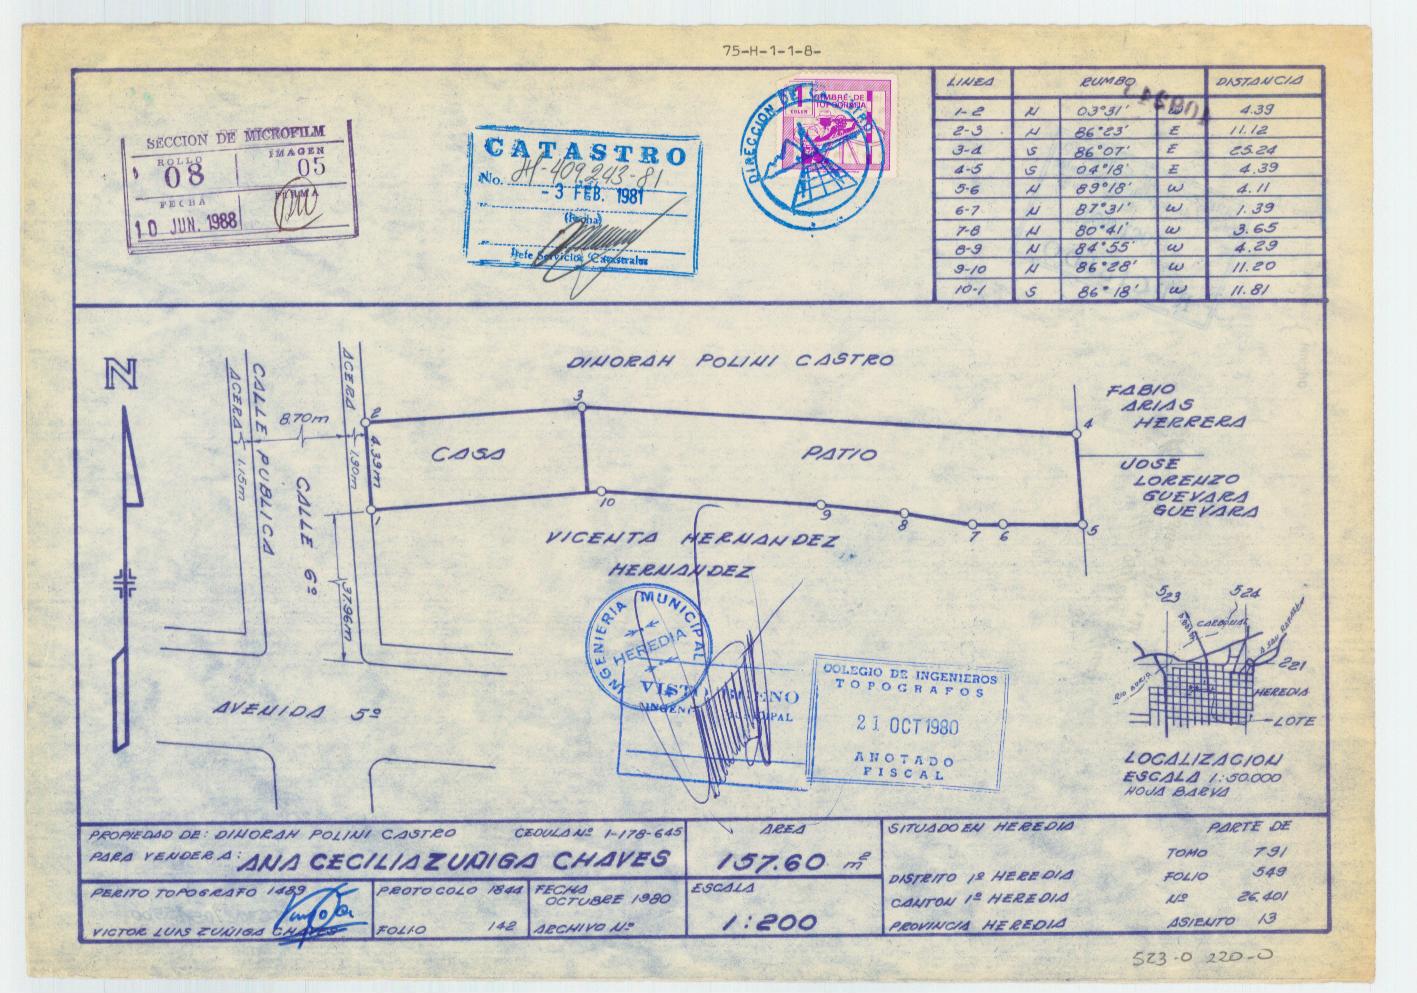 75-H-1-1-8-
SECCION DE MICROFILM
ROLLO IMAGEN
08 05
FECHA FIRMA
10 JUN. 1988
CATASTRO
No. H-409243-81
- 3 FEB. 1981
(Fecha)
Jefe Servicios Catastrales
DIRECCION DE CATASTRO
TIMBRE DE
TOPOGRAFIA
1
COLON
LINEA RUMBO DISTANCIA
1-2 N 03°31' W 4.39
2-3 N 86°23' E 11.12
3-4 S 86°07' E 25.24
4-5 S 04°18' E 4.39
5-6 N 89°18' W 4.11
6-7 N 87°31' W 1.39
7-8 N 80°41' W 3.65
8-9 N 84°55' W 4.29
9-10 N 86°28' W 11.20
10-1 S 86°18' W 11.81
N
ACERA
1.15m
CALLE PUBLICA
8.70m
CALLE 6ª
ACERA
1.30m
4.39m
37.96m
DINORAH POLINI CASTRO
2 3 4
CASA PATIO
1 10 9 8 7 6 5
FABIO
ARIAS
HERRERA
JOSE
LORENZO
GUEVARA
GUEVARA
VICENTA HERNANDEZ
HERNANDEZ
AVENIDA 5ª
INGENIERIA MUNICIPAL
HEREDIA
VISTO BUENO
COLEGIO DE INGENIEROS
TOPOGRAFOS
21 OCT 1980
ANOTADO
FISCAL
523 524
CARBONAL
A SAN RAFAEL
221
HEREDIA
LOTE
LOCALIZACION
ESCALA 1:50.000
HOJA BARVA
PROPIEDAD DE: DINORAH POLINI CASTRO CEDULA Nº 1-178-645
PARA VENDER A: ANA CECILIA ZUÑIGA CHAVES
AREA
157.60 m²
PERITO TOPOGRAFO 1489
VICTOR LUIS ZUÑIGA CHAVES
PROTOCOLO 1844
FOLIO 142
FECHA
OCTUBRE 1980
ARCHIVO Nº
ESCALA
1:200
SITUADO EN HEREDIA
DISTRITO 1º HEREDIA
CANTON 1º HEREDIA
PROVINCIA HEREDIA
PARTE DE
TOMO 791
FOLIO 549
Nº 26.401
ASIENTO 13
523-0 220-0